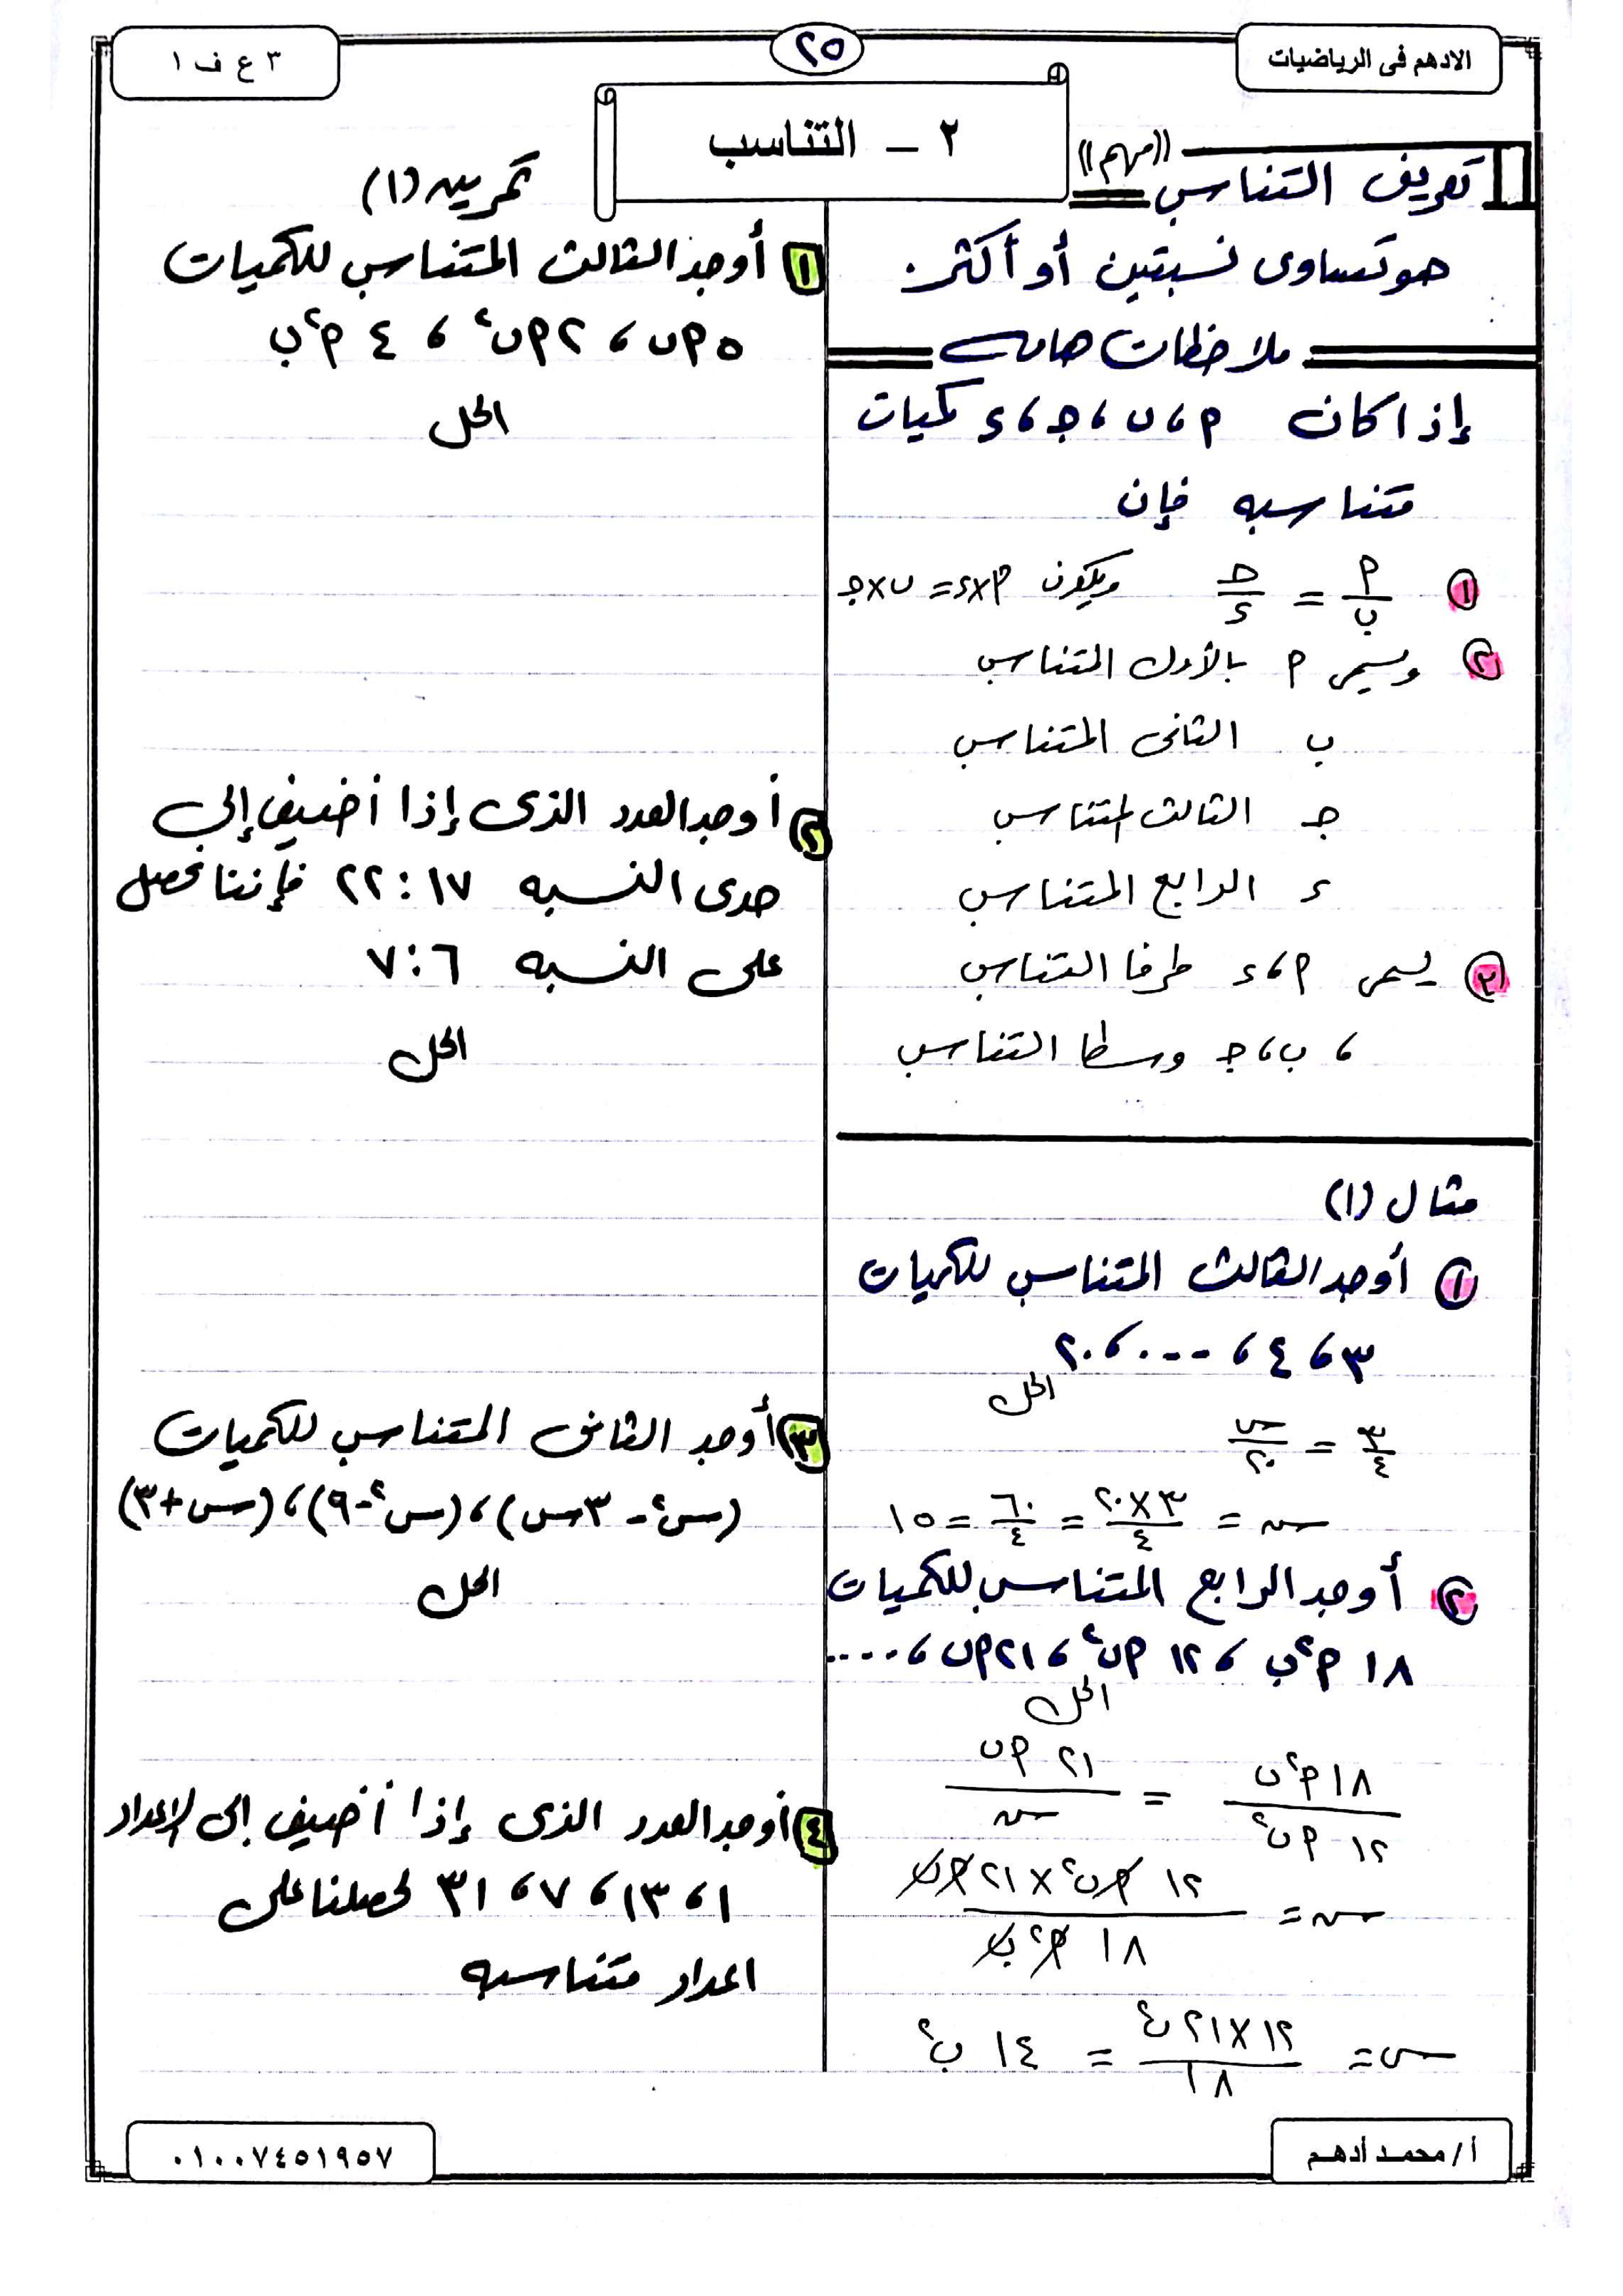 الادهم فى الرياضيات
٢٥
٣ ع ف ١
٢ – التناسب
تعريف التناسب ((مهم))
هو تساوى نسبتين أو أكثر.
ملاحظات هامه
إذا كان م، ب، جـ، ء كميات
متناسبه فإن
١ م/ب = جـ/ء ويكون م×ء = ب×جـ
٢ ويسمى م بالأول المتناسب
ب الثانى المتناسب
جـ الثالث المتناسب
ء الرابع المتناسب
٣ يسمى م، ء طرفا التناسب
، ب، جـ وسطا التناسب
مثال (١)
١ أوجد الثالث المتناسب للكميات
٣، ٤، ....، ٢٠
الحل
٣/٤ = س/٢٠
س = ٣×٢٠/٤ = ٦٠/٤ = ١٥
٢ أوجد الرابع المتناسب للكميات
١٨ م٢ب، ١٢ م ب٢، ٢١ م ب، ....
الحل
١٨ م٢ب/١٢ م ب٢ = ٢١ م ب/س
س = ١٢ م ب٢ × ٢١ م ب/١٨ م٢ ب
س = ١٢×٢١ ب٢/١٨ = ١٤ ب٢
تمرين (١)
١ أوجد الثالث المتناسب للكميات
٥ م ب، ٢ م ب٢، ٤ م٢ب
الحل
٢ أوجد العدد الذى إذا أضيف إلى
حدى النسبه ١٧ : ٢٢ فإننا نحصل
على النسبه ٦ : ٧
الحل
٣ أوجد الثانى المتناسب للكميات
(س٢ - ٣س)، (س٢ - ٩)، (س + ٣)
الحل
٤ أوجد العدد الذى إذا أضيف إلى الاعداد
١، ١٣، ٧، ٣١ لحصلنا على
اعداد متناسبه
أ / محمد أدهم
٠١٠٠٧٤٥١٩٥٧